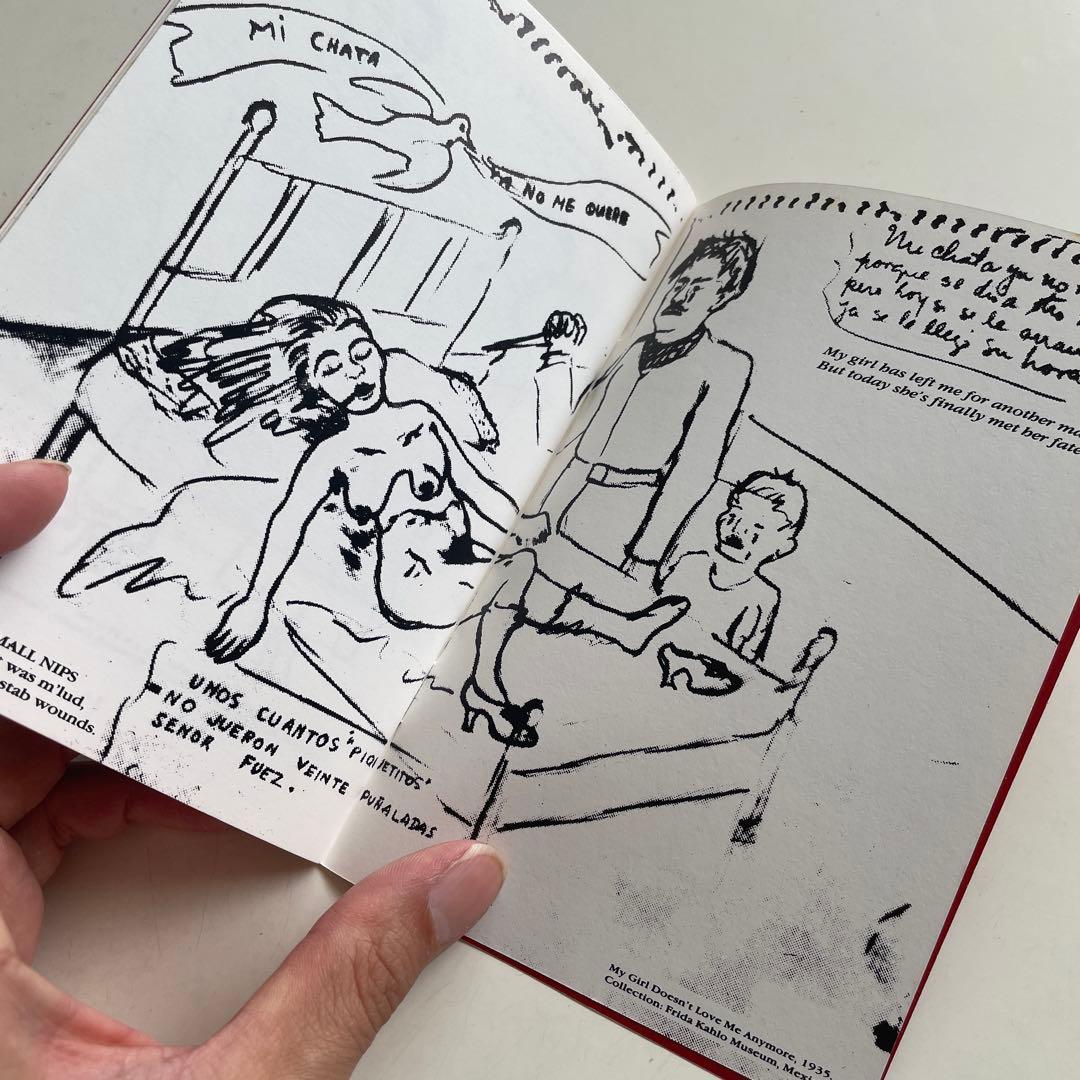 Mi CHATA
YA NO ME QUIERE
MALL NIPS
was m'lud,
stab wounds.
UNOS CUANTOS "PIQUETITOS"
NO JUERON VEINTE PUÑALADAS
SEÑOR
FUEZ.
Mi chata ya no
porque se dió a tro
pero hoy si se la arran
ya se le llegó su hora
My girl has left me for another ma
But today she's finally met her fate
My Girl Doesn't Love Me Anymore, 1935.
Collection: Frida Kahlo Museum, Mexi